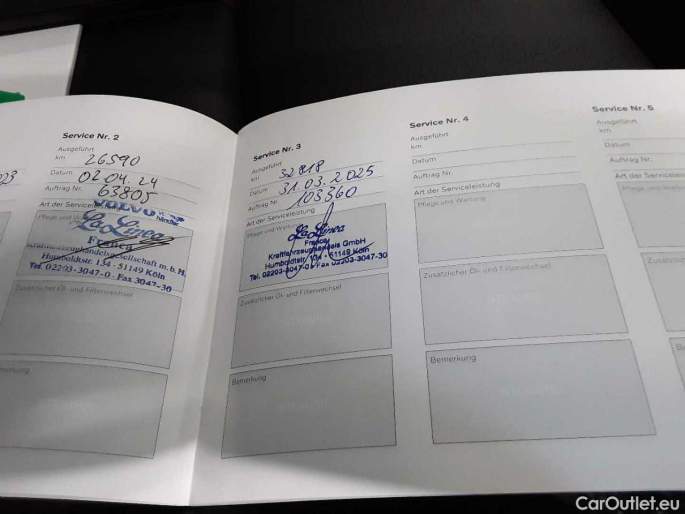 Service Nr. 2
Ausgeführt
km 26590
Datum 02.04.24
Auftrag Nr. 63805
Art der Serviceleistung
Pflege und
VOLVO
La Linea
Franca
Kraftfahrzeughandelsgesellschaft m.b.H.
Humboldtstr. 134 · 51149 Köln
Tel. 02203-3047-0 · Fax 3047-30
Zusätzlicher Öl- und Filterwechsel
Bemerkung
Service Nr. 3
Ausgeführt
km 32818
Datum 31.03.2025
Auftrag Nr. 103360
Art der Serviceleistung
Pflege und Wartung
La Linea
Franca
Kraftfahrzeughandels GmbH
Humboldtstr. 134 · 51149 Köln
Tel. 02203-3047-0 · Fax 02203-3047-30
Zusätzlicher Öl- und Filterwechsel
Bemerkung
Service Nr. 4
Ausgeführt
km
Datum
Auftrag Nr.
Art der Serviceleistung
Pflege und Wartung
Zusätzlicher Öl- und Filterwechsel
Bemerkung
Service Nr. 5
Ausgeführt
km
Datum
Auftrag Nr.
Art der Serviceleistung
Pflege und Wartung
Zusätzlicher
Bemerkung
CarOutlet.eu